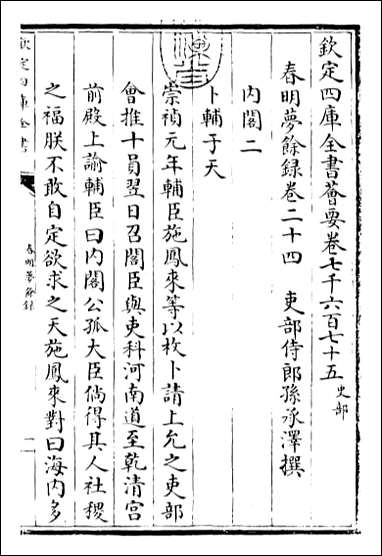 欽定四庫全書薈要卷七千六百七十五 史部
春明夢餘錄卷二十四 吏部侍郎孫承澤撰
內閣二
卜輔于天
崇禎元年輔臣施鳳來等以枚卜請上允之吏部
會推十員翌日召閣臣與吏科河南道至乾清宮
前殿上諭輔臣曰內閣公孤大臣倘得其人社稷
之福朕不敢自定欲求之天施鳳來對曰海內多
欽定四庫全書
春明夢餘錄